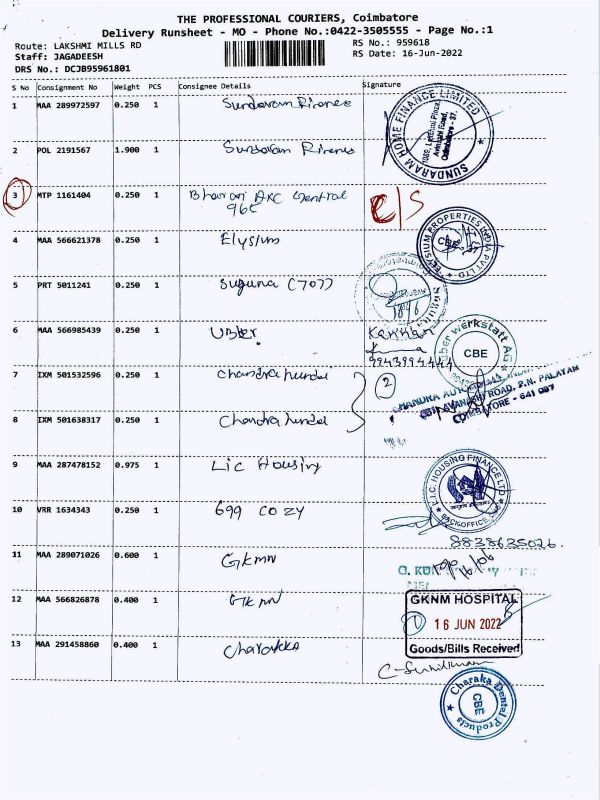 THE PROFESSIONAL COURIERS, Coimbatore
Delivery Runsheet - MO - Phone No.:0422-3505555 - Page No.:1
Route: LAKSHMI MILLS RD
Staff: JAGADEESH
DRS No.: DCJB95961801
RS No.: 959618
RS Date: 16-Jun-2022
S No Consignment No Weight PCS Consignee Details Signature
1 MAA 289972597 0.250 1 Sundaram
SUNDARAM HOME FINANCE LIMITED
Coimbatore - 37.
2 POL 2191567 1.900 1
3 MTP 1161404 0.250 1
c/s
4 MAA 566621378 0.250 1 Elysium
ELYSIUM PROPERTIES INDIA PVT LTD
CBE
5 PRT 5011241 0.250 1 Suguna (707)
6 MAA 566985439 0.250 1 Uber
CBE
7 IXM 501532596 0.250 1 Chandra hundai
2
8 IXM 501638317 0.250 1 Chandra hundai
AVANASHI ROAD, P.N. PALAYAM
COIMBATORE - 641 037
9 MAA 287478152 0.975 1 Lic Housing
L.I.C. HOUSING FINANCE LTD
BACK OFFICE
10 VRR 1634343 0.250 1 699 COZY
8838635026
11 MAA 289071026 0.600 1 GKMN
16/06
12 MAA 566826878 0.400 1 GKMN
GKNM HOSPITAL
16 JUN 2022
Goods/Bills Received
13 MAA 291458860 0.400 1 Charakka
Charaka Dental Products
CBE